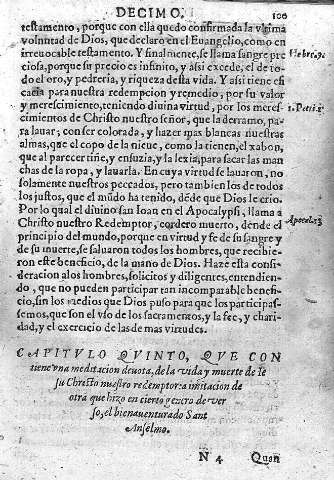 DECIMO. 100
testamento, porque con ella quedo confirmada la vltima
volũtad de Dios, que declaro en el Euangelio, como en
irreuocable testamento. Y finalmente, se llama sangre pre Hebre. 9.
ciosa, porque su precio es infinito, y assi excede, el de to
do el oro, y pedreria, y riqueza desta vida. Y assi tiene efi
cacia para nuestra redempcion y remedio, por su valor
y merescimiento, teniendo diuina virtud, por los meres- 1. Petri. 2.
cimientos de Christo nuestro señor, que la derramo, pa
ra lauar; con ser colorada, y hazer mas blancas nuestras
almas, que el copo de la nieue, como la tienen, el xabon,
que al parecer tiñe, y ensuzia, y la lexia, para sacar las man
chas de la ropa, y lauarla. En cuya virtud se lauaron, no
solamente nuestros peccados, pero tambien los de todos
los justos, que el mũdo ha tenido, dẽde que Dios le crio.
Por lo qual el diuino san Ioan en el Apocalypsi, llama a Apocal. 13
Christo nuestro Redemptor, cordero muerto, dende el
principio del mundo, porque en virtud y fe de su sangre y
de su muerte, se saluaron todos los hombres, que recibie
ron este beneficio, de la mano de Dios. Haze esta consi
deracion a los hombres, solicitos y diligentes, entendien
do, que no pueden participar tan incomparable benefi
cio, sin los medios que Dios puso para que los participas-
semos, que son el vso de los sacramentos, y la fee, y chari
dad, y el exercicio de las de mas virtudes.
CAPITVLO QVINTO, QVE CON
tiene vna meditacion deuota, de la vida y muerte de Ie
su Christo nuestro redemptor: a imitacion de
otra que hizo en cierto genero de ver
so, el bienauenturado Sant
Anselmo.
N 4 Quan